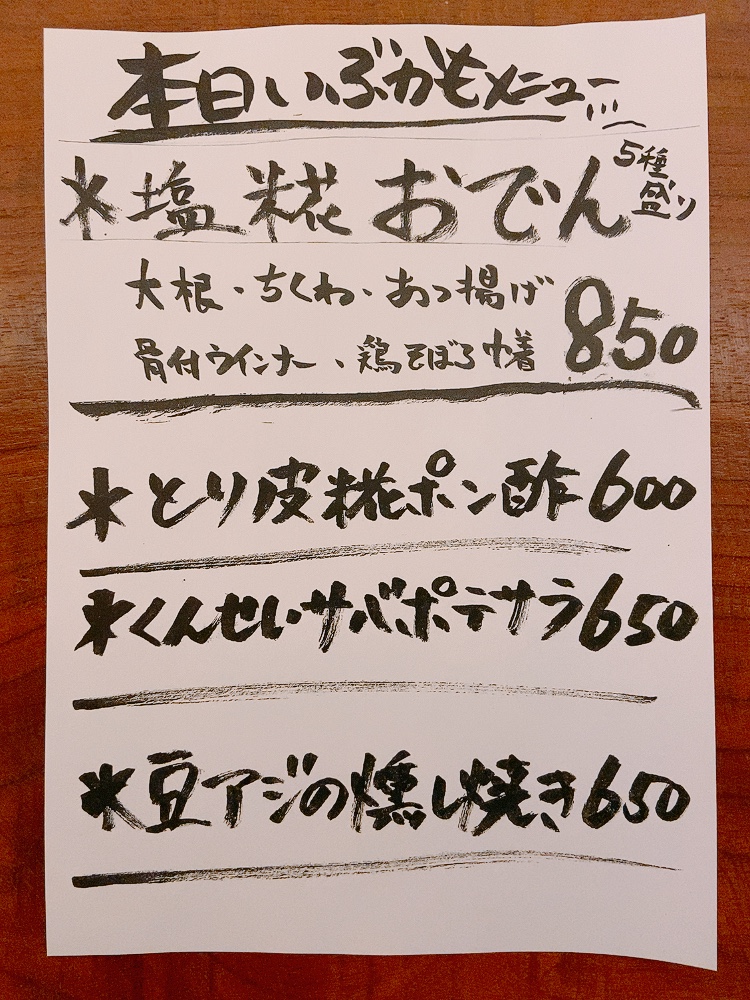 本日いぶかもメニュー
*塩糀おでん 5種盛り
大根・ちくわ・あつ揚げ
骨付ウインナー、鶏そぼろ巾着 850
*とり皮糀ポン酢 600
*くんせいサバポテサラ 650
*豆アジの燻し焼き 650